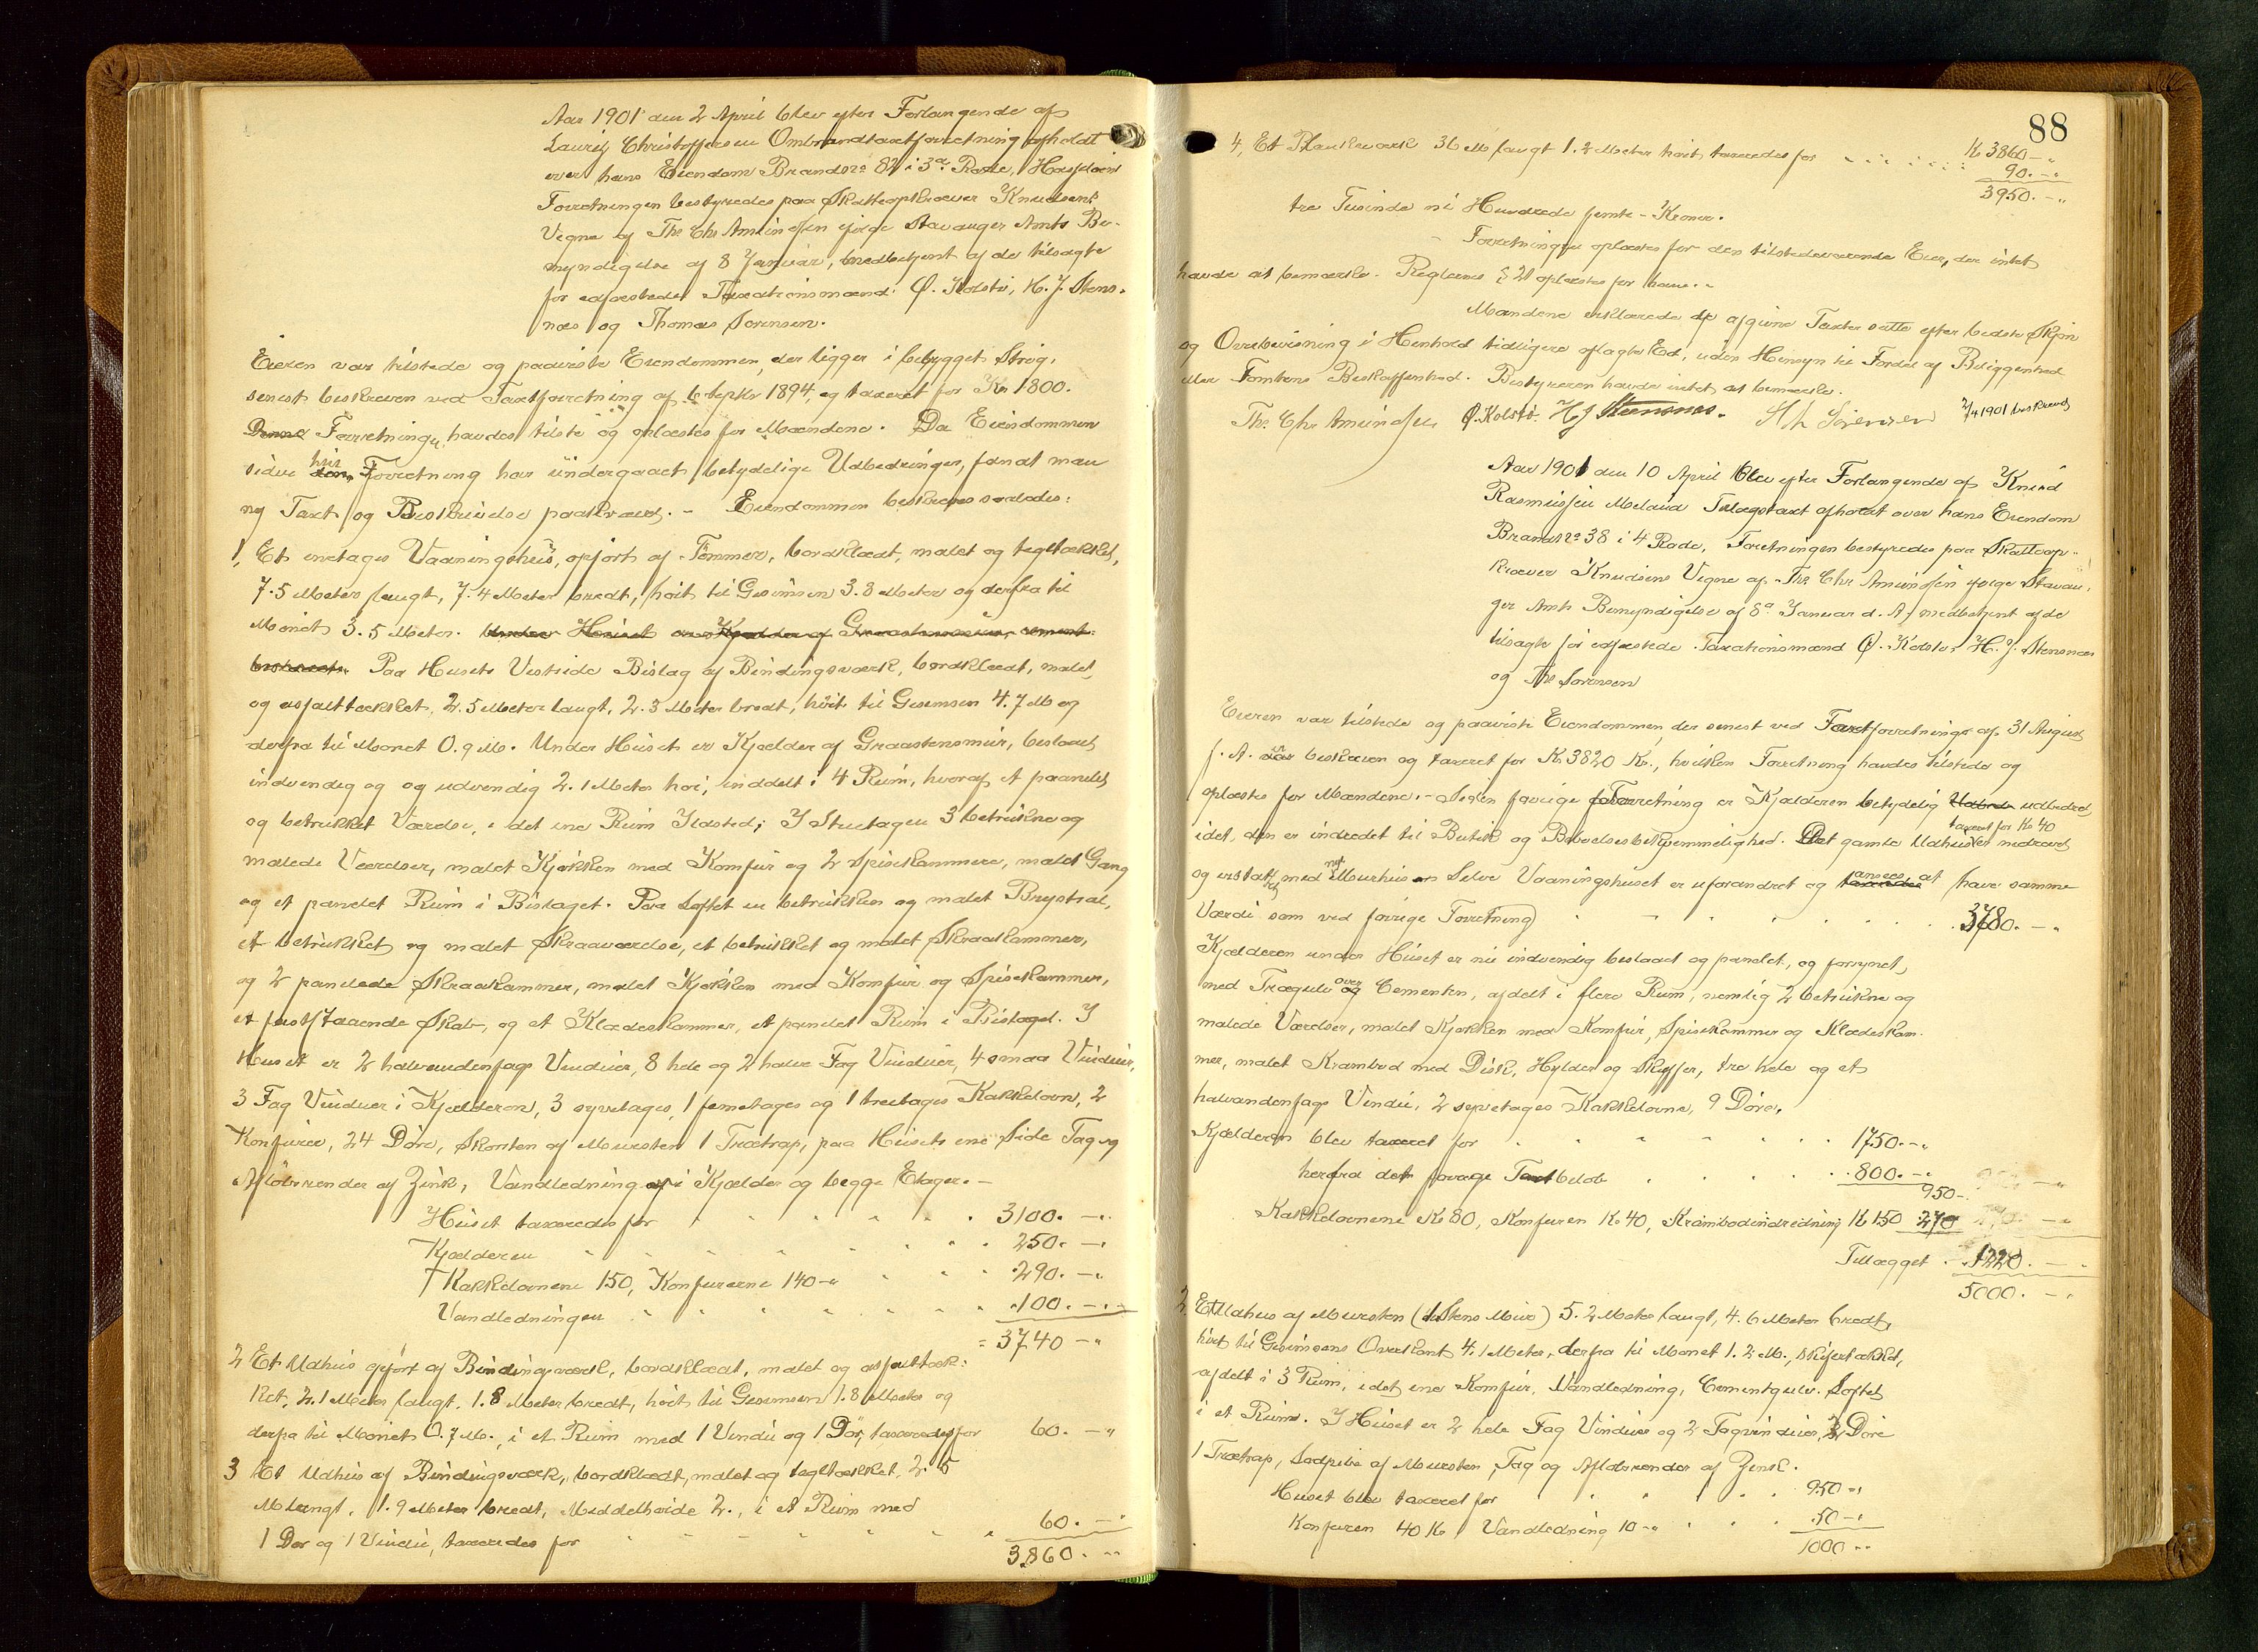 Aar 1901 den 2 April blev efter Forlangende af
Lauritz Christoffersen Ombrandtaxtforretning afholdt
over hans Eiendom Brandnro 82 i 3die Rode,
Forretningen bestyredes paa Skatteopkræver Knudsens
Vegne af Ths. Chr. Amundsen ifølge Stavanger Amts Be-
myndigelse af 8 Januar, medbetjent af de tilsagte
før edfæstede Taxationsmænd: O. Kolstø, H. J. Stens-
næs og Thomas Sørensen.
Eieren var tilstede og paaviste Eiendommen, der ligger i bebygget Strøg,
senest beskreven ved Taxtforretning af 6 Septbr 1894, og taxeret for Kr. 1800.
Denne Forretning havdes tilste og oplæstes for Mændene. Da Eiendommen
siden hin Forretning har undergaaet betydelige Udbedringer, fandt man
ny Taxt og Beskrivelse paakrævet. - Eiendommen beskreves saaledes:
1, Et enetages Vaaningshus, opført af Tømmer, bordklædt, malet og tegltækket,
7.5 Meter langt, 7.4 Meter bredt, høit til Gesimsen 3.8 Meter og derfra til
Mønet 3.5 Meter. Under Huset er Kjælder af Graastensmur, cement-
Paa Husets Vestside Bislag af Bindingsværk, bordklædt, malet,
og asfalttækket, 2.5 Meter langt, 2.3 Meter bredt, høit til Gesimsen 4.7 M og
derfra til Mønet 0.9 M. Under Huset er Kjælder af Graastensmur, beslaaet
indvendig og og udvendig 2.1 Meter høi, inddelt i 4 Rum, hvoraf et paanelet
og betrukket Værelse, i det ene Rum Ildsted; I Stuetagen 3 betrukne og
malede Værelser, malet Kjøkken med Komfur og 2 Spisekammere, malet Gang
og et panelet Rum i Bislaget. Paa Loftet en betrukken og malet Brystsal,
et betrukket og malet Skraaværelse, et betrukket og malet Skraakammer,
og 2 panelede Skraakammer, malet Kjøkken med Komfur og Spisekammer,
et fastst­aaende Skab, og et Klædeskammer, et panelet Rum i Bislaget. I
Huset er 2 halvandenfags Vinduer, 8 hele og 2 halve Fag Vinduer, 4 smaa Vinduer,
3 Fag Vinduer i Kjælderen, 3 syvetages, 1 femetages og 1 treetages Kakkelovn, 2
Komfurer, 24 Døre, Skorsten af Mursten 1 Trætrap, paa Husets ene Side Tag og
Afløbsrender af Zink, Vandledning i Kjælder og begge Etager. -
Huset taxeredes for 3100. -
Kjælderen 250. -
Kakkelovnene 150, Komfurerne 140 - 290. -
Vandledningen 100. -
= 3740 -
2 Et Udhus opført af Bindingsværk, bordklædt, malet og asfalttæk-
ket, 2.1 Meter langt, 1.8 Meter bredt, høit til Gesimsen 1.8 Meter og
derfra til Mønet 0.7 M., i et Rum med 1 Vindu og 1 Dør, taxeredes for 60. -
3 Et Udhus af Bindingsværk, bordklædt, malet og tegltækket, 2.5
M langt, 1.9 Meter bredt, Middelhøide 2., i et Rum med
1 Dør og 1 Vindu, taxeredes for 60. -
3860. -
88
4, Et Plankeværk 36 M langt 1.2 Meter høit taxeredes for
K 3860 -
90. -
3950. -
tre Tusinde ni Hundrede femti - Kroner.
Forretningen oplæstes for den tilstedeværende Eier, der intet
havde at bemærke. Reglernes § 20 oplæstes for ham. -
Mændene erklærede de afgivne Taxter satte efter bedste Skjøn
og Overbevisning i Henhold tidligere aflagte Ed, uden Hensyn til Fordel af Beliggenhed
eller Tomtens Beskaffenhed. Bestyreren havde intet at bemærke.
Ths. Chr Amundsen O. Kolstø. H J Stensnes. Th Sørensen 2/4 1901 beskrevet
Aar 1901 den 10 April blev efter Forlangende af Knud
Rasmussen Meland Tillægstaxt afholdt over hans Eiendom
Brandnro 38 i 4 Rode, Forretningen bestyredes paa Skatteop-
kræver Knudsens Vegne af Ths. Chr Amundsen ifølge Stavan-
ger Amts Bemyndigelse af 8de Januar d. A, medbetjent af de
tilsagte før edfæstede Taxationsmænd O. Kolstø, H. J. Stensnæs
og Th Sørensen
Eieren var tilstede og paaviste Eiendommen, der senest ved Taxtforretning af 31 August
f. A. er beskreven og taxeret for K. 3820 Kr., hvilken Forretning havdes tilstede og
oplæstes for Mændene. - Siden forrige Forretning er Kjælderen betydelig udbedret,
taxeret for Kr 40
idet, den er indredet til Butik og Beboelsesbekvemmelighed. Det gamle Udhus er nedrevet
og erstattet med nyt Murhus Selve Vaaningshuset er uforandret og ansees at have samme
Værdi som ved forrige Forretning 3780. -
Kjælderen under Huset er nu indvendig beslaaet og panelet, og forsynet
med Trægulv over Cementen, afdelt i flere Rum, nemlig 2 betrukne og
malede Værelser, malet Kjøkken med Komfur, Spisekammer og Klædeskam-
mer, malet Krambod med Disk, Hylder og Skuffer, tre hele og et
halvandenfags Vindu, 2 syvetages Kakkelovne, 9 Døre,
Kjælderen blev taxeret for 1750. -
herfra det forrige Taxtbeløb 800. -
950 -
Kakkelovnene Kr 80, Komfuren Kr 40, Krambodindredning Kr 150 270
Tillægget 1220. -
5000. -
2. Et Udhus af Mursten (1 Stens Mur) 5.2 Meter langt, 4.6 Meter bredt,
høit til Gesimsens Overkant 4.1 Meter, derfra til Mønet 1.2 M., skifertækket,
afdelt i 3 Rum, i det ene Komfur, Vandledning, Cementgulv. Loftet
i et Rum. I Huset er 2 hele Fag Vinduer og 2 Tagvinduer, 2 Døre
1 Trætrap, Sodpibe af Mursten, Tag og Afløbsrender af Zink.
Huset blev taxeret for 950 -
Komfuren 40 Kr Vandledning 10 - 50 -
1000 -